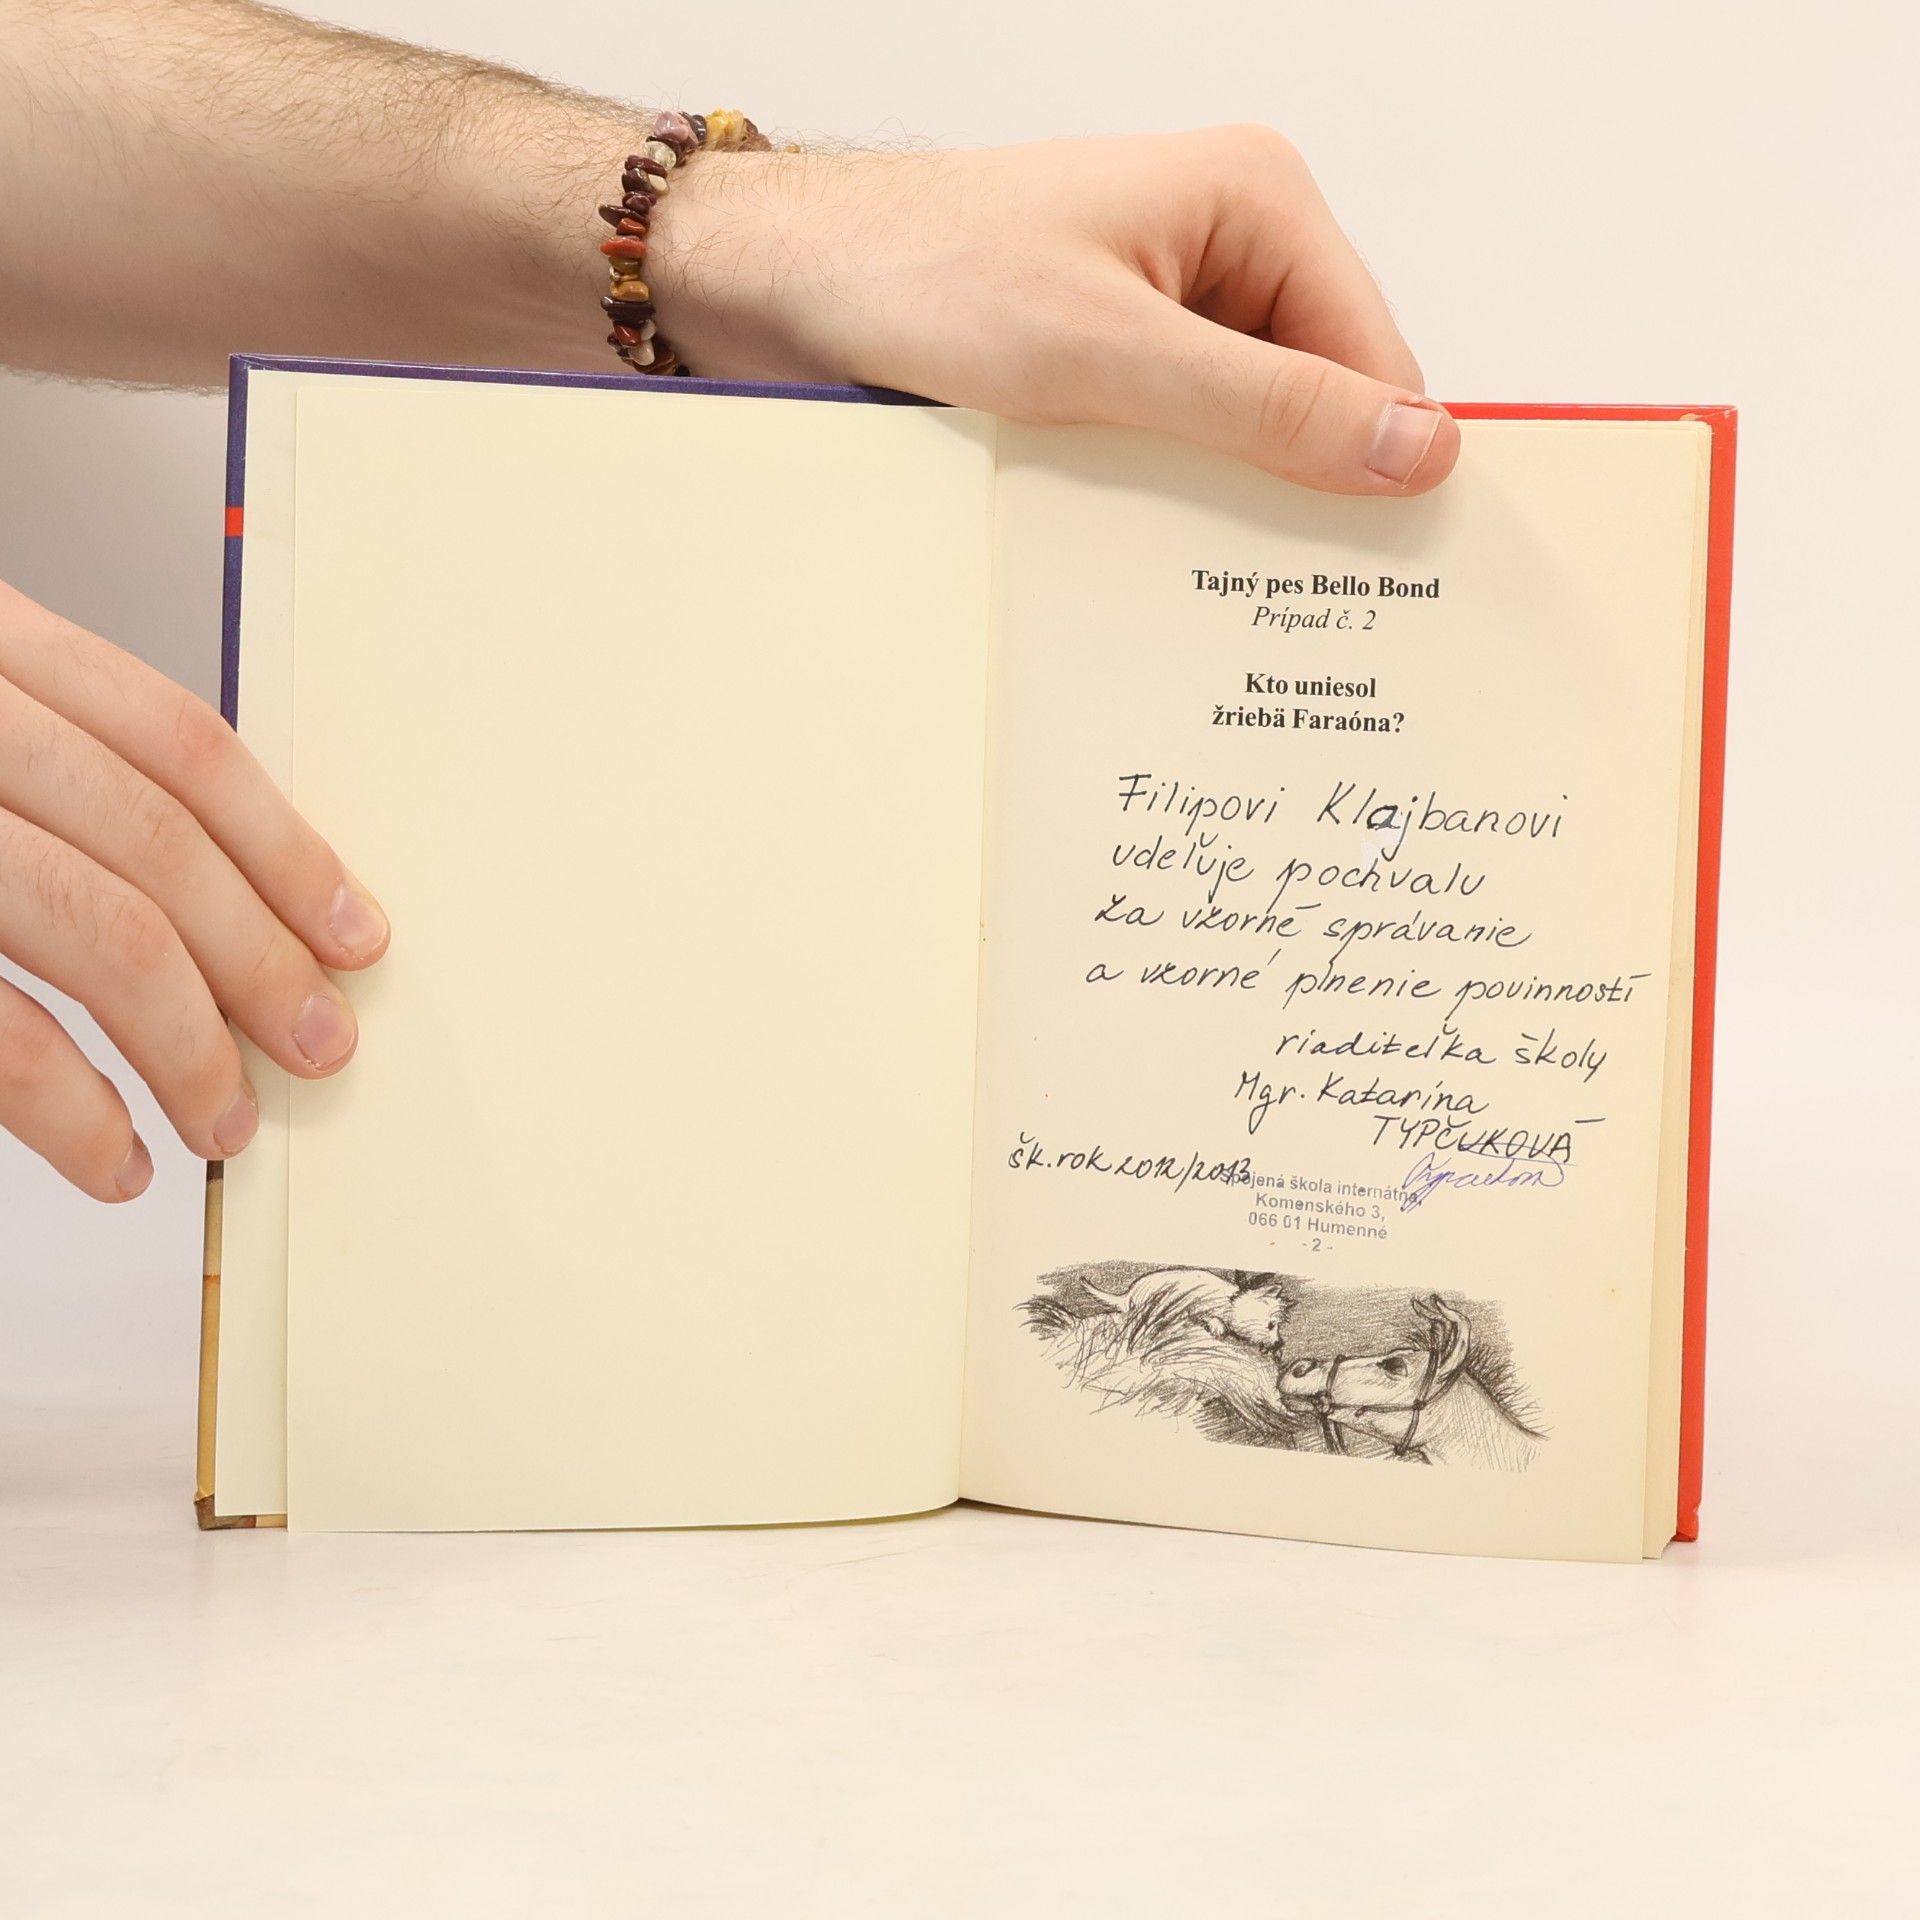 Tajný pes Bello Bond
Prípad č. 2
Kto uniesol
žriebä Faraóna?
Filipovi Klajbanovi
udeľuje pochvalu
za vzorné správanie
a vzorné plnenie povinností
riaditeľka školy
Mgr. Katarína
TYPČUKOVÁ
šk. rok 2012/2013
Spojená škola internátna,
Komenského 3,
066 01 Humenné
- 2 -